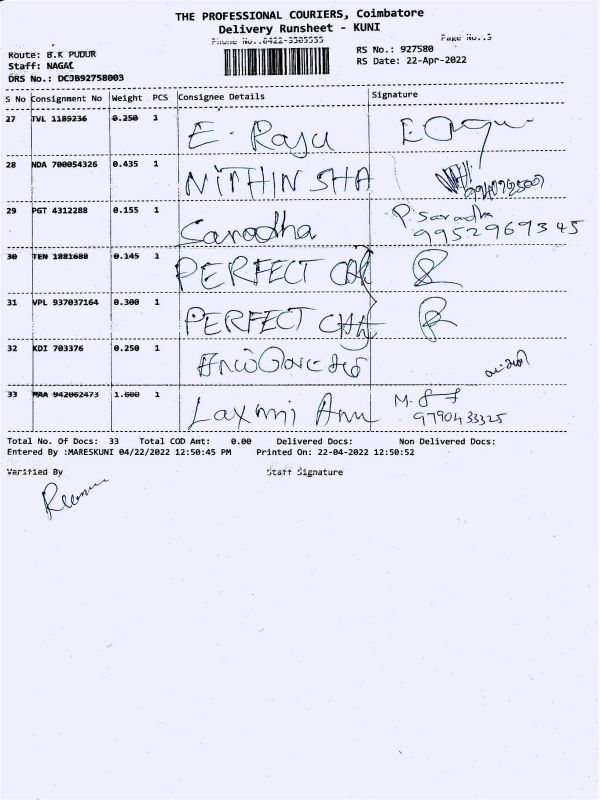 THE PROFESSIONAL COURIERS, Coimbatore
Delivery Runsheet - KUNI
Page No.:5
Route: B.K PUDUR
RS No.: 927580
Staff: NAGAL
RS Date: 22-Apr-2022
DRS No.: DCJB92758003
S No Consignment No Weight PCS Consignee Details Signature
27 TVL 1189236 0.250 1 E. Raju
28 NDA 700054326 0.435 1 NITHIN SHA
29 PGT 4312288 0.155 1 Sarodha P. Saradha
9952969345
30 TEN 1881688 0.145 1 PERFECT
31 VPL 937037164 0.300 1 PERFECT
32 KDI 703376 0.250 1
33 MAA 942062473 1.600 1 Laxmi M.
9790433325
Total No. Of Docs: 33 Total COD Amt: 0.00 Delivered Docs: Non Delivered Docs:
Entered By :MARESKUNI 04/22/2022 12:50:45 PM Printed On: 22-04-2022 12:50:52
Verified By Staff Signature